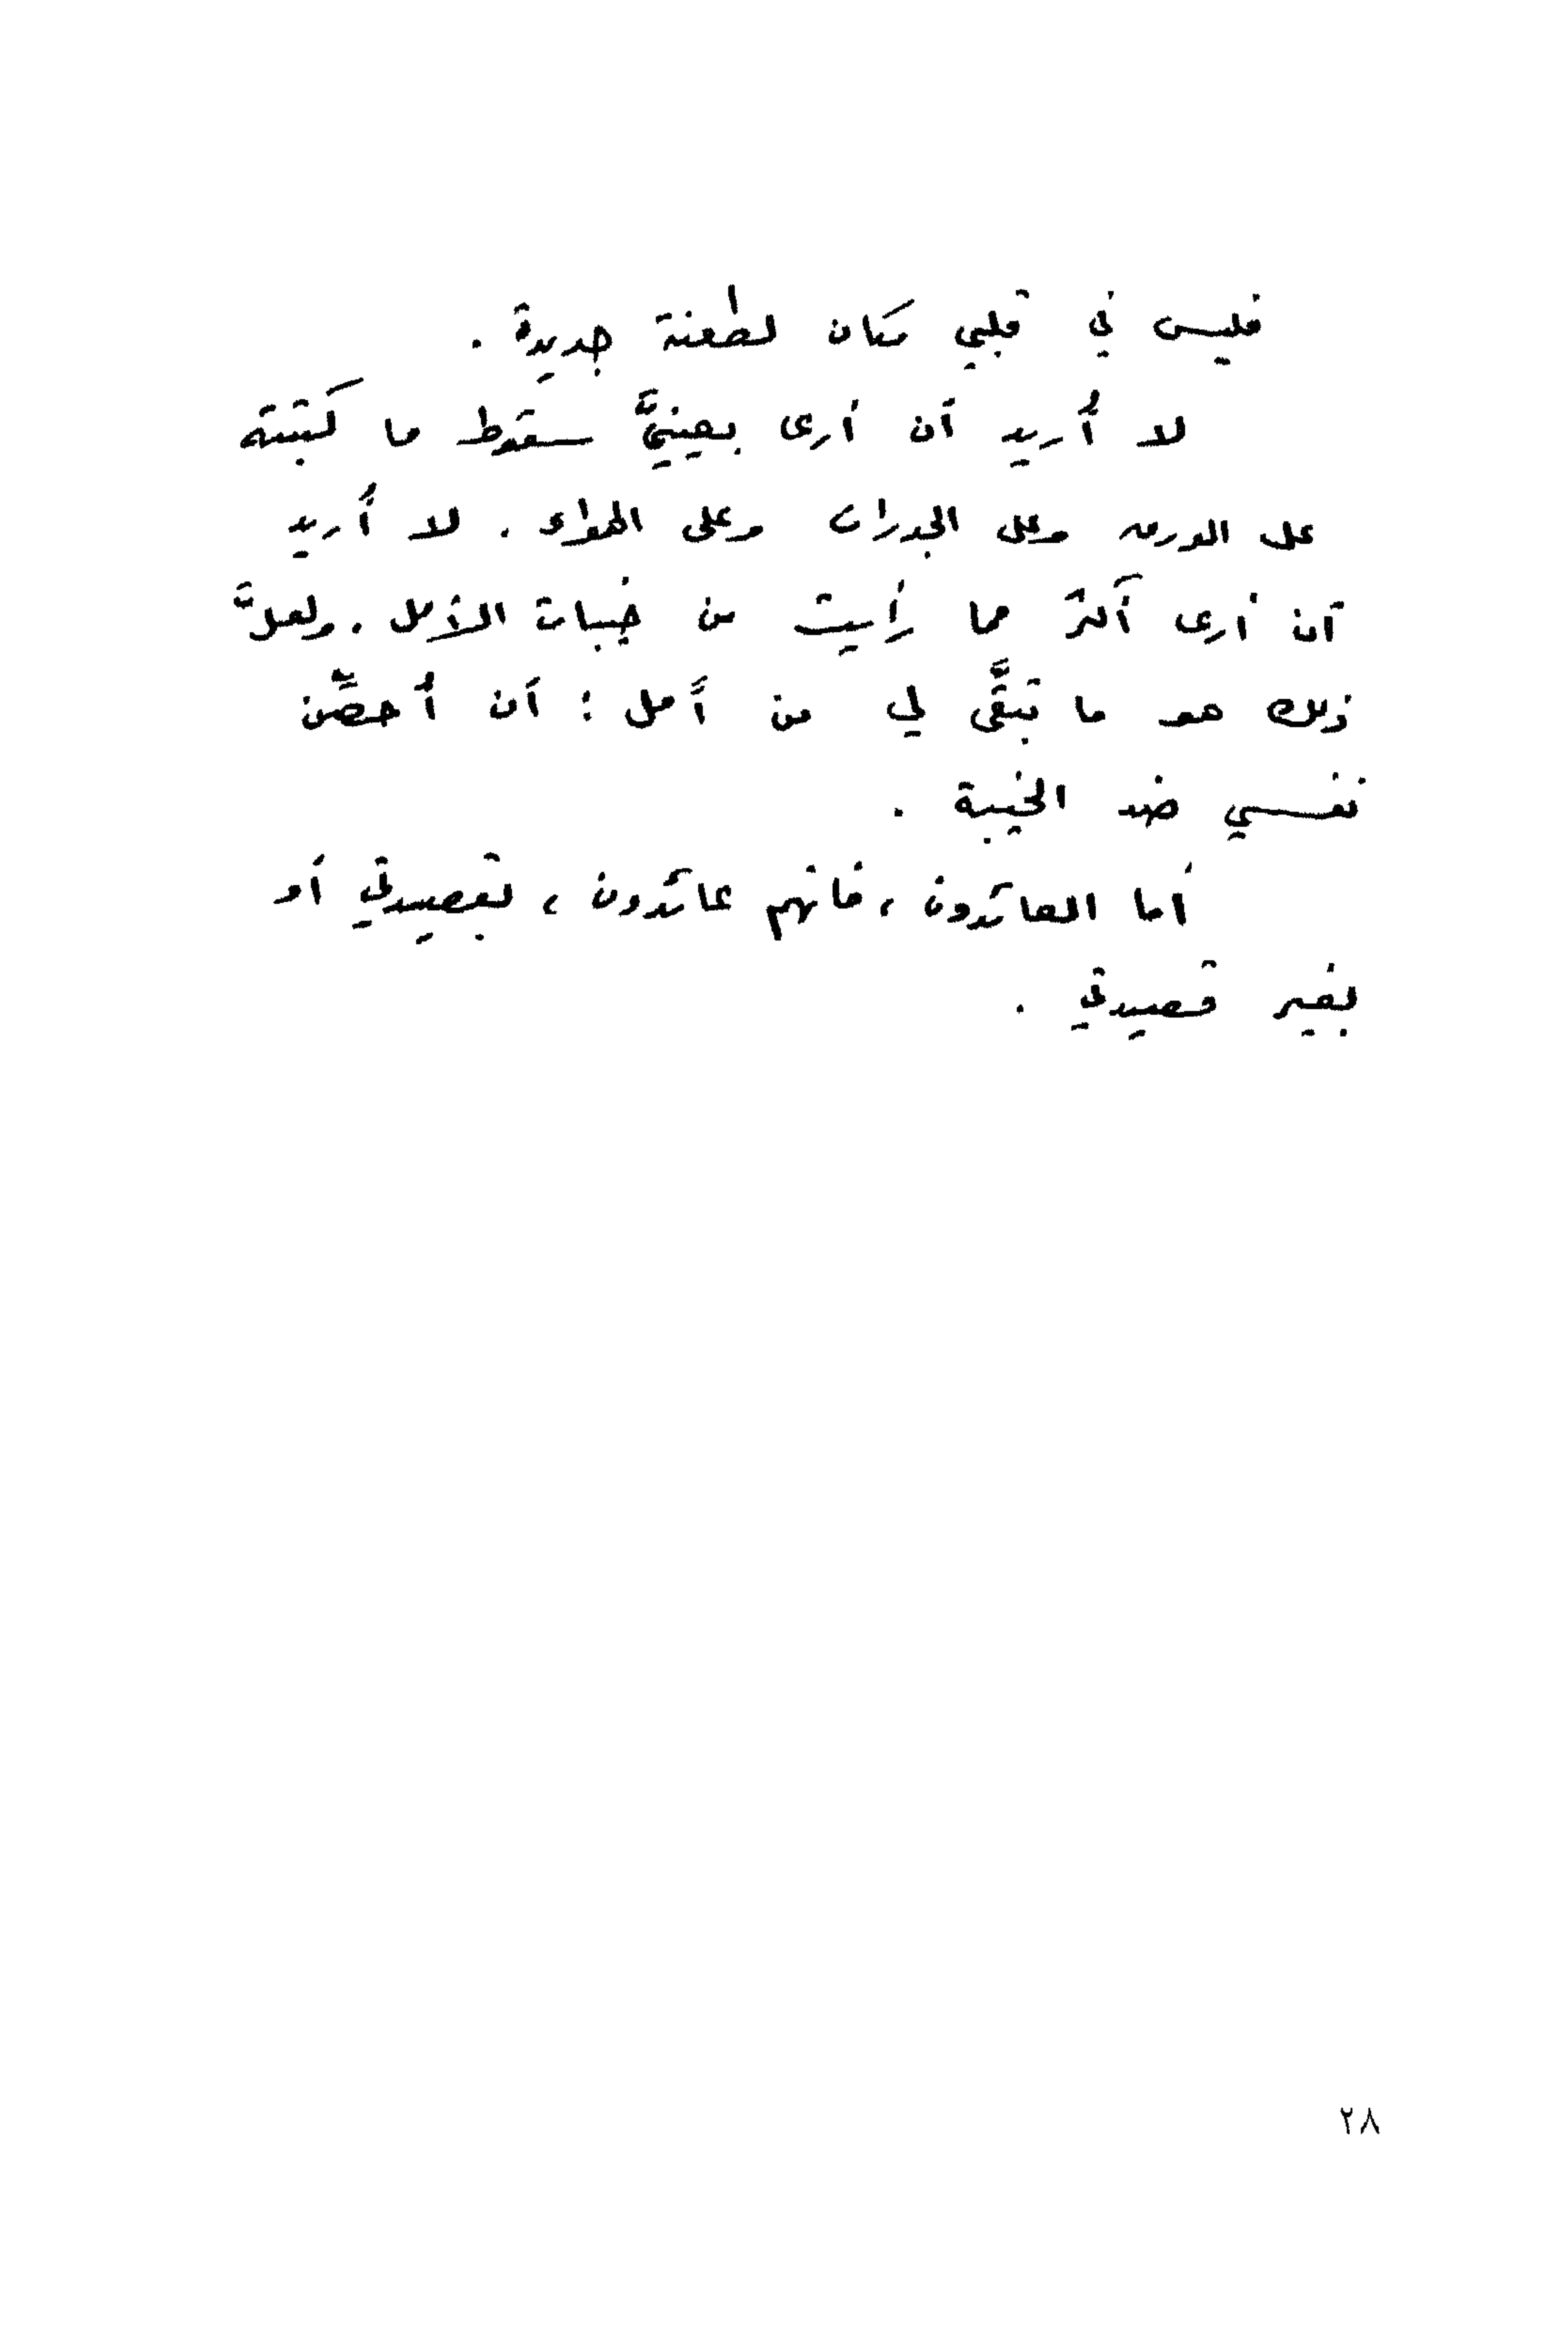 فليس في قلبي مكان لطعنة جديدة .
لا أُريد أن أرى بعينيَّ سقوط ما كَتبته
على الورق وعلى الجدران وعلى الهواء . لا أُريد
أن أرى أكثر مما رأيت من خيبات الأمل . ولعلَّ
ذلك هو ما تبقَّى لي من أمل : أن أُحصِّن
نفسي ضد الخيبة .
أما العائدون ، فانهم عائدون ، بقصيدتي أو
بغير قصيدتي .
٢٨